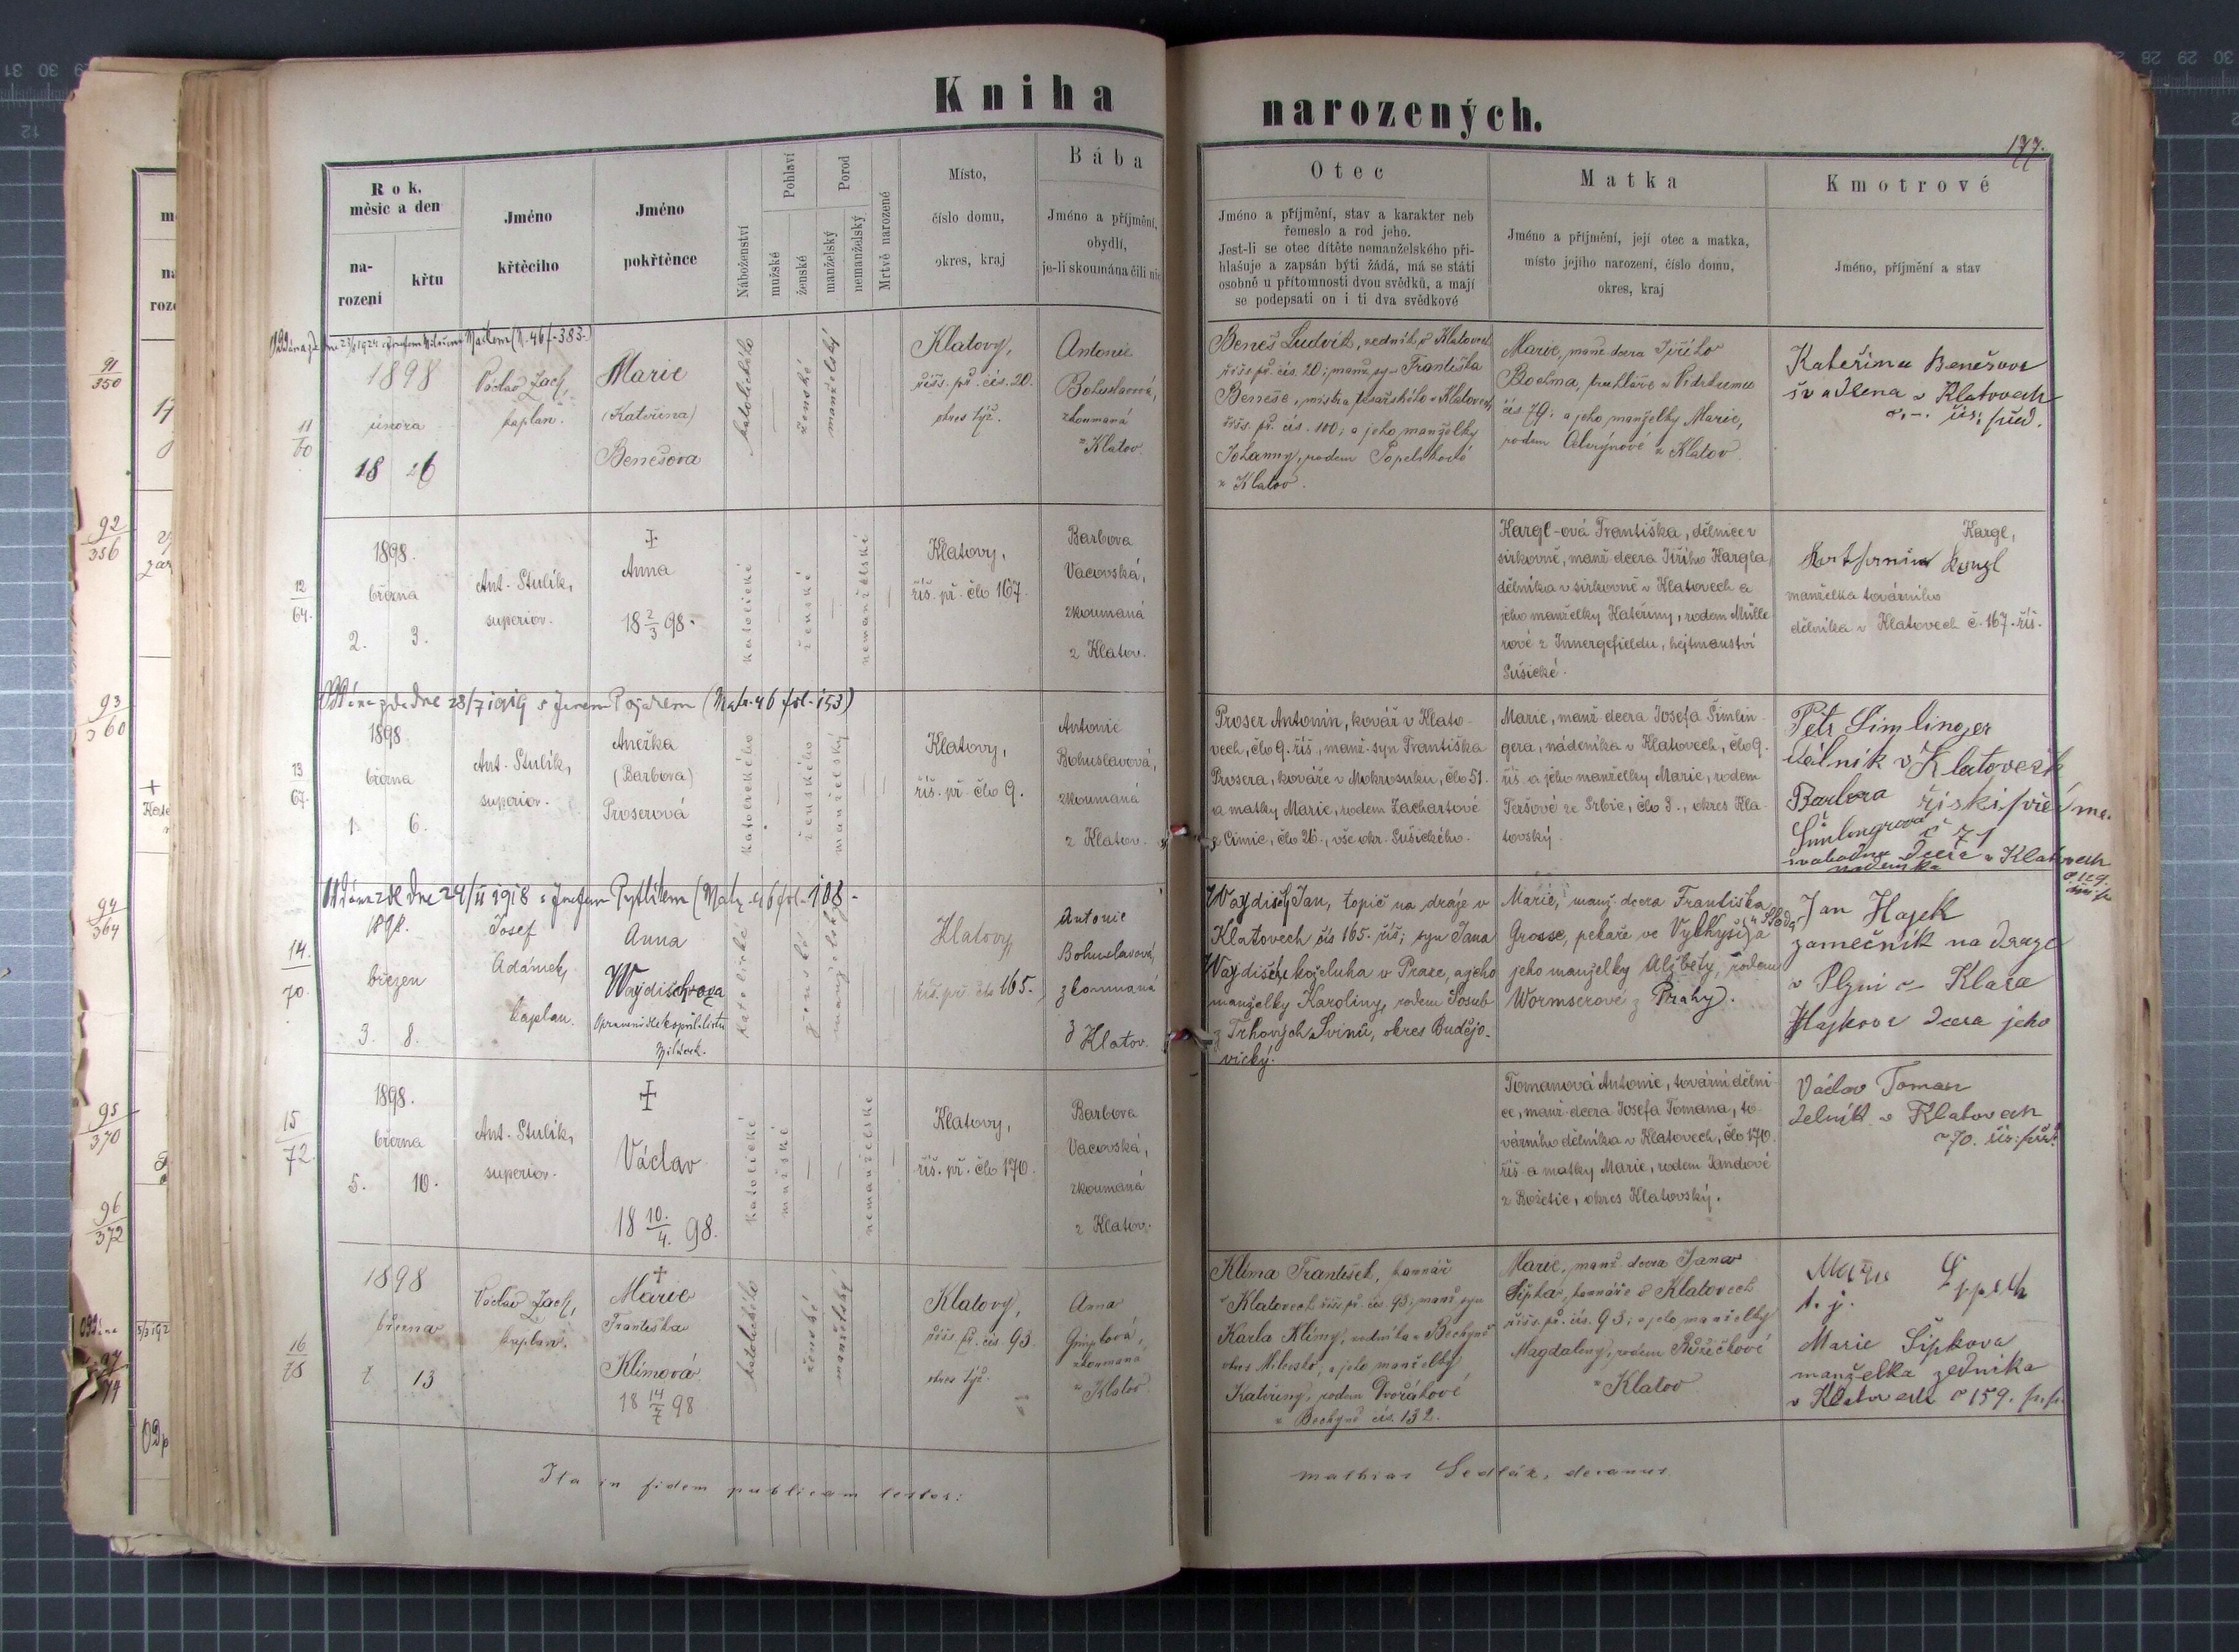 Kniha narozených.
177.
Rok, měsíc a den
narození
křtu
Jméno křtěcího
Jméno pokřtěnce
Náboženství
Pohlaví
mužské
ženské
Porod
manželský
nemanželský
Mrtvě narozené
Místo,
číslo domu,
okres, kraj
Bába
Jméno a příjmění,
obydlí,
je-li skoumána čili nic
Otec
Jméno a příjmění, stav a karakter neb
řemeslo a rod jeho.
Jest-li se otec dítěte nemanželského při-
hlašuje a zapsán býti žádá, má se státi
osobně u přítomnosti dvou svědků, a mají
se podepsati on i ti dva svědkové
Matka
Jméno a příjmění, její otec a matka,
místo jejího narození, číslo domu,
okres, kraj
Kmotrové
Jméno, příjmění a stav
11
60
1898
února
18 26
Václav Zach,
kaplan.
Marie
(Kateřina)
Benešova
katolického
ženské
manželský
Klatovy,
říšs. př. čís. 20.
okres týž.
Antonie
Bohuslavová,
zkoumaná
z Klatov.
Beneš Ludvík, zedník v Klatovech
říšs. př. čís. 20; manž. syn Františka
Beneše, mistra tesařského v Klatovech,
říšs. př. čís. 100; a jeho manželky
Johanny, rodem Popelkové
z Klatov.
Marie, manž. dcera Jiřího
čís. 79; a jeho manželky Marie,
z Klatov.
Kateřina Benešova
švadlena v Klatovech
12
64.
1898.
března
2. 3.
Ant. Stulík,
superior.
+
Anna
18 2/3 98.
katolické
ženské
nemanželské
Klatovy,
říš. př. člo 167.
Barbora
Vacovská,
zkoumaná
z Klatov.
Kargl-ová Františka, dělnice v
sirkovně, manž. dcera Jiřího Kargla,
dělníka v sirkovně v Klatovech a
jeho manželky Kateřiny, rodem Mülle-
rové z Innergefieldu, hejtmanství
Sušické.
Kargl,
manželka továrního
dělníka v Klatovech č. 167. říš.
Oddána zde dne 28/7 1919 s Janem (Matr. 46 fol. 153)
13
67.
1898
března
1. 6.
Ant. Stulík,
superior.
Anežka
(Barbora)
Proserová
katolického
ženského
manželský
Klatovy,
říš. př. člo 9.
Antonie
Bohuslavová,
zkoumaná
z Klatov.
Proser Antonín, kovář v Klato-
vech, člo 9. říš., manž. syn Františka
Prosera, kováře v Mokrosuku, člo 51.
a matky Marie, rodem Zachartové
z Čimic, člo 26., vše okr. Sušického.
Marie, manž. dcera Josefa Šimlin-
gera, nádeníka v Klatovech, člo 9.
říš. a jeho manželky Marie, rodem
Teršové ze Srbic, člo 3., okres Kla-
tovský.
Petr Simlinger
dělník v Klatovech
Barbora
Šimlingrová
č 71
dcera v Klatovech
Oddána zde dne 24/II 1918 s Josefem Pytlíkem (Matr. 46 fol. 108.
14.
70.
1898.
březen
3. 8.
Josef
Adámek,
kaplan.
Anna
Wajdischova
katolické
ženské
manželský
Klatovy,
říš. př. člo 165.
Antonie
Bohuslavová,
zkoumaná
z Klatov.
Wajdisch Jan, topič na dráze v
Klatovech čís 165. říš; syn Jana
Wajdische, koželuha v Praze, a jeho
manželky Karoliny, rodem Josub
z Trhových Svinů, okres Budějo-
vický.
Marie, manž. dcera Františka
Grosse, pekaře ve
jeho manželky Alžběty, rodem
Wormserové z Prahy.
Jan Hajek
zamečník na draze
v Plzni a Klara
Hajkova dcera jeho
15
72.
1898.
března
5. 10.
Ant. Stulík,
superior.
+
Václav
18 10./4. 98.
katolické
mužské
nemanželské
Klatovy,
říš. př. člo 170.
Barbora
Vacovská,
zkoumaná
z Klatov.
Tomanová Antonie, tovární dělni-
ce, manž. dcera Josefa Tomana, to-
várního dělníka v Klatovech, člo 170.
říš. a matky Marie, rodem Jandové
z Božetic, okres Klatovský.
Václav Toman
dělník v Klatovech
16
78
1898
března
13
Václav Zach,
kaplan.
+
Marie
Františka
Klímová
18 14/7 98
katolického
ženské
manželský
Klatovy,
říšs. př. čís. 93.
okres týž.
Anna
zkoumaná
z Klatov.
Klíma František, kamnář
v Klatovech říšs. př. čís. 93; manž. syn
Karla Klímy, v Bechyně
okres Milevsko, a jeho manželky
Kateřiny, rodem Dvořákové
z Bechyně čís. 132.
Marie, manž. dcera Jana
Šípka, kamnáře v Klatovech
říšs. př. čís. 93; a jeho manželky
Magdaleny, rodem
z Klatov
t. j.
Marie Šípkova
manželka zedníka
v Klatovech č 159.
Ita in fidem publicam testor:
Mathias Sedlák, decanus
91
350
92
356
93
360
94
364
95
370
96
372